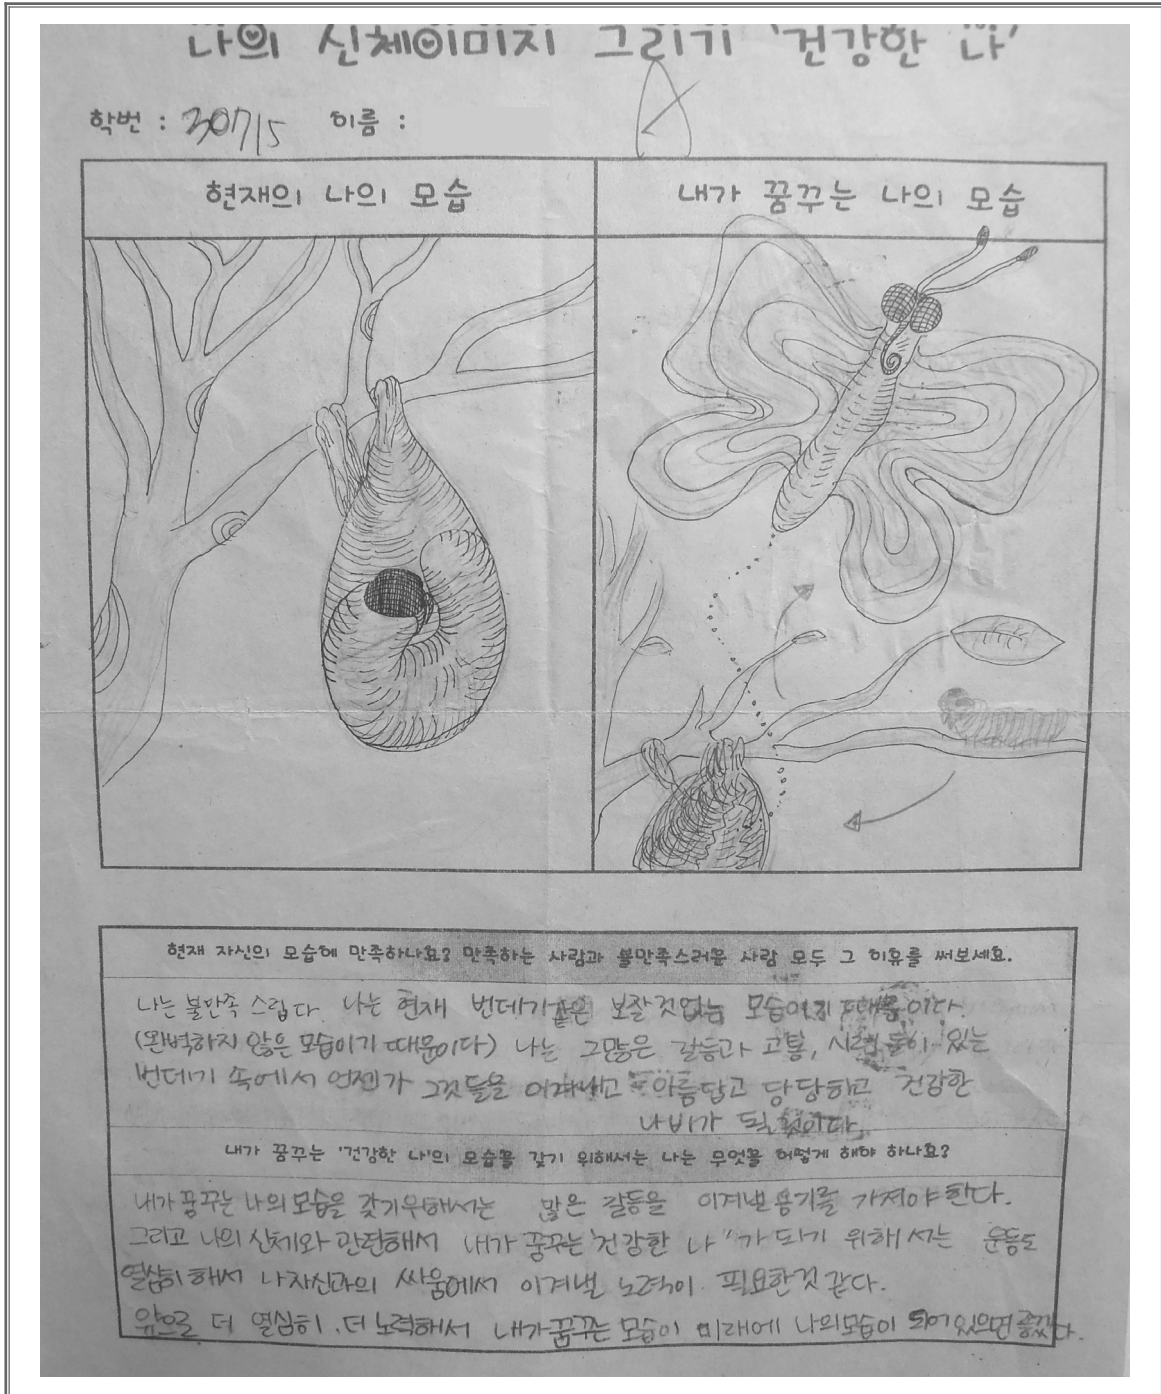 나의 신체이미지 그리기 '건강한 나'
학번 : 30715 이름 :
A
현재의 나의 모습
내가 꿈꾸는 나의 모습
현재 자신의 모습에 만족하나요? 만족하는 사람과 불만족스러운 사람 모두 그 이유를 써보세요.
나는 불만족 스럽다. 나는 현재 번데기같은 보잘것없는 모습이기 때문이다.
(완벽하지 않은 모습이기 때문이다) 나는 그많은 갈등과 고통, 시련 들이 있는
번데기 속에서 언젠가 그것들을 이겨내고 아름답고 당당하고 건강한
나비가 될 것이다.
내가 꿈꾸는 '건강한 나'의 모습을 갖기 위해서는 나는 무엇을 어떻게 해야 하나요?
내가 꿈꾸는 나의 모습을 갖기위해서는 많은 갈등을 이겨낼 용기를 가져야 한다.
그리고 나의 신체와 관련해서 내가 꿈꾸는 "건강한 나"가 되기 위해서는 운동도
열심히 해서 나 자신과의 싸움에서 이겨낼 노력이 필요한것 같다.
앞으로 더 열심히, 더 노력해서 내가 꿈꾸는 모습이 미래에 나의모습이 되어있으면 좋겠다.